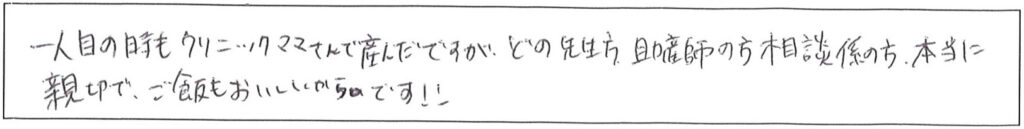 一人目の時もクリニックママさんで産んだですが、どの先生方、助産師の方、相談係の方、本当に
親切で、ご飯もおいしいからのです!!